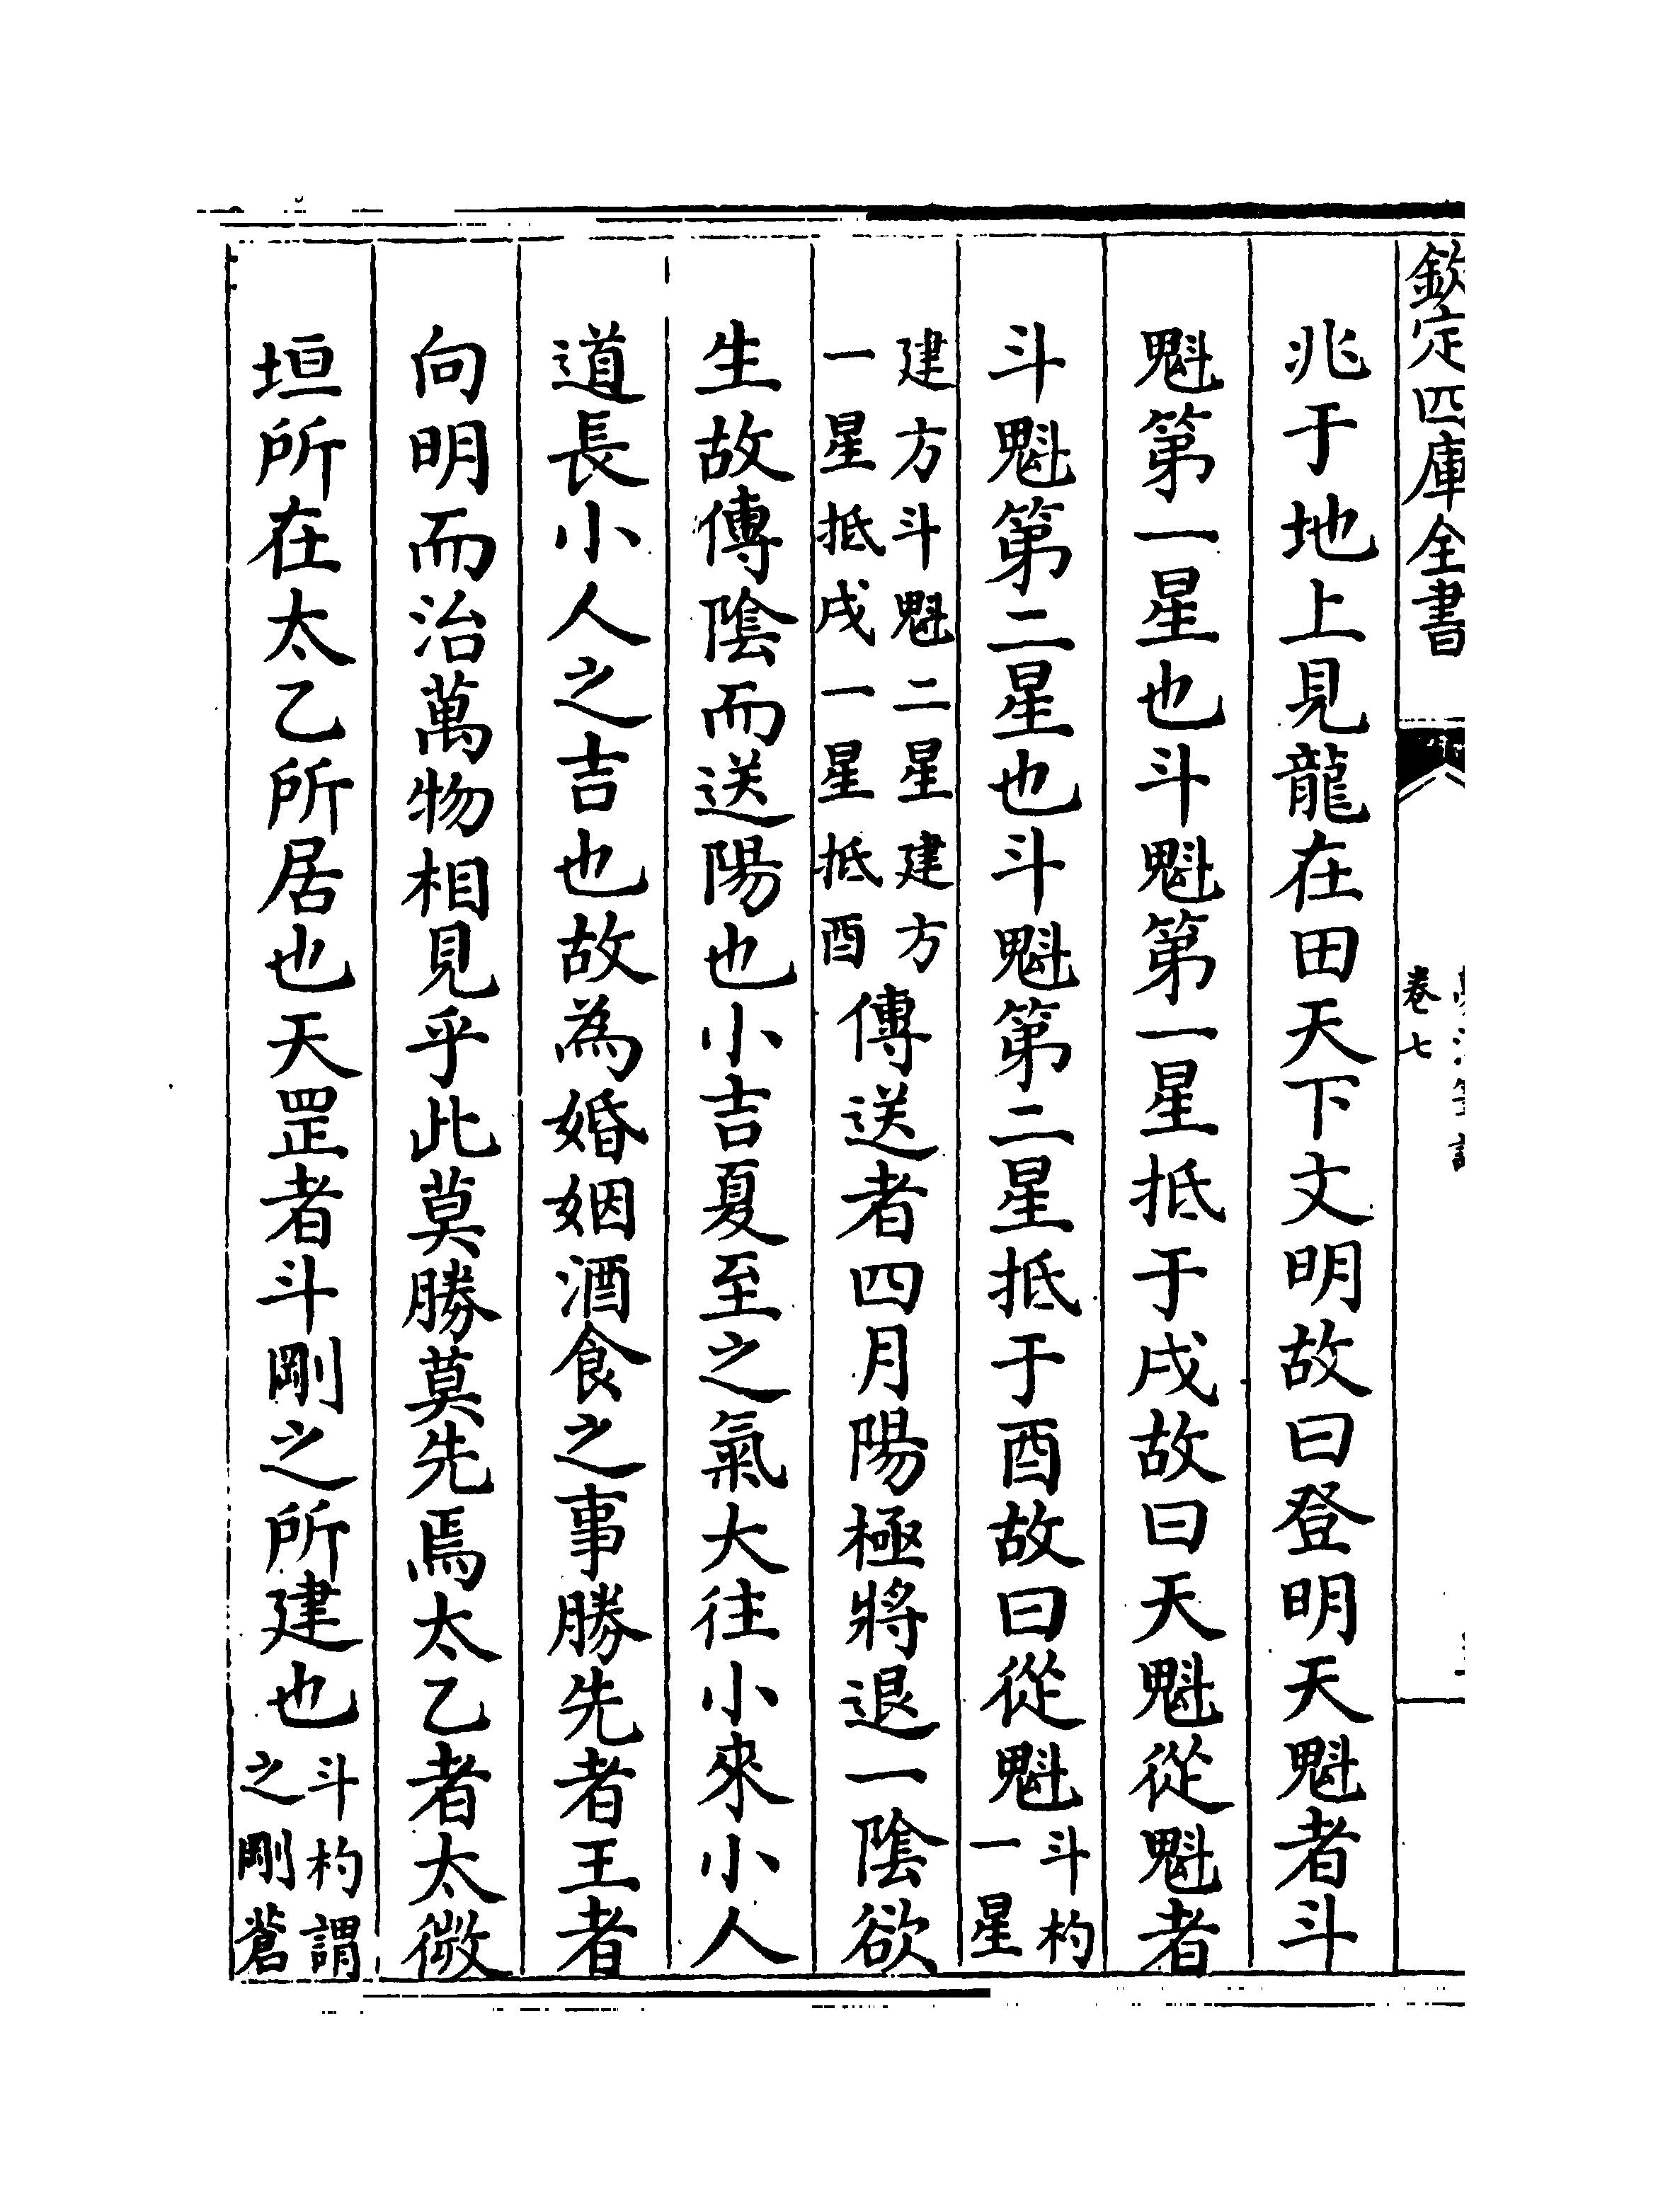 欽定四庫全書
卷七
兆于地上見龍在田天下文明故曰登明天魁者斗
魁第一星也斗魁第一星抵于戌故曰天魁從魁者
斗魁第二星也斗魁第二星抵于酉故曰從魁斗杓一星
建方斗魁二星建方一星抵戌一星抵酉傳送者四月陽極將退一陰欲
生故傳陰而送陽也小吉夏至之氣大往小來小人
道長小人之吉也故為婚姻酒食之事勝先者王者
向明而治萬物相見乎此莫勝莫先焉太乙者太微
垣所在太乙所居也天罡者斗剛之所建也斗杓謂之剛蒼